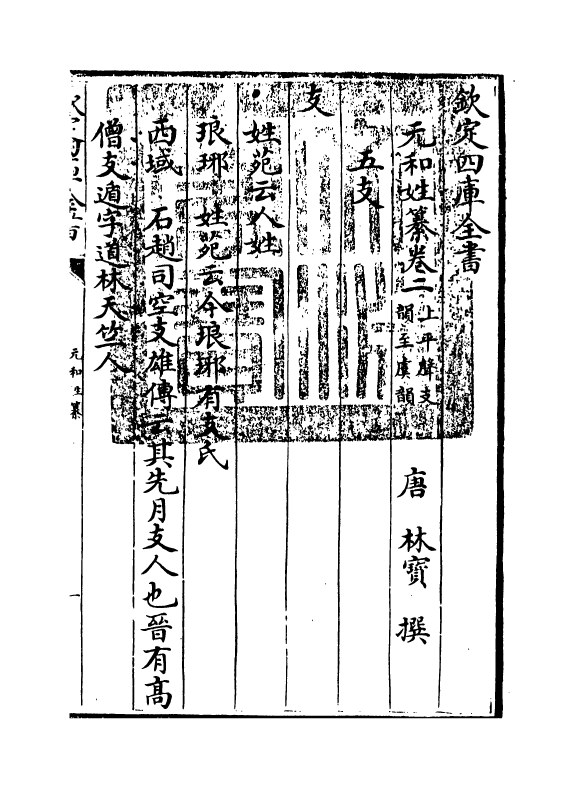 欽定四庫全書
元和姓纂卷二 上平聲支韻至虞韻 唐 林寶 撰
五支
支
姓苑云人姓
琅琊 姓苑云今琅琊有支氏
西域 石趙司空支雄傳云其先月支人也晉有高
僧支遁字道林天竺人
欽定四庫全書 元和姓纂 一